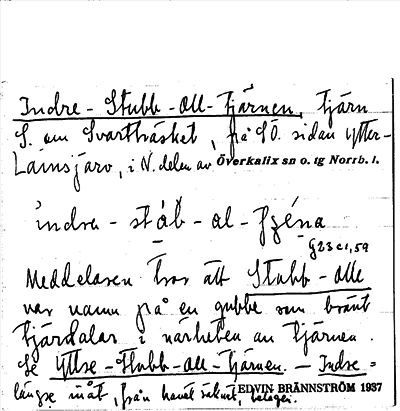 Indre-Stubb-Olle-tjärnen, tjärn
S. om Svartträsket, på SÖ. sidan Ytter-
Lainsjärv, i N. delen av Överkalix sn o. tg Norrb. l.
indre-stáb-ol-
G 23 c 1, 59
Meddelaren tror att Stubb-Olle
var namn på en gubbe som bränt
tjärdalar i närheten av tjärnen.
Se Yttre-Stubb-Olle-tjärnen. - Indre =
längre inåt, från havet räknat, belägen. EDVIN BRÄNNSTRÖM 1937